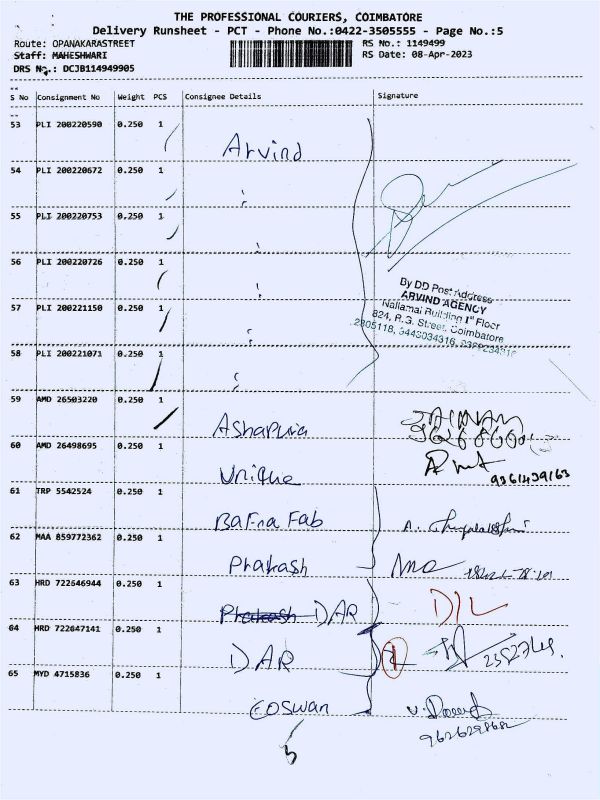 THE PROFESSIONAL COURIERS, COIMBATORE
Delivery Runsheet - PCT - Phone No.:0422-3505555 - Page No.:5
Route: OPANAKARASTREET
RS No.: 1149499
Staff: MAHESHWARI
RS Date: 08-Apr-2023
DRS No.: DCJB114949905
S No Consignment No Weight PCS Consignee Details Signature
53 PLI 200220590 0.250 1 Arvind
54 PLI 200220672 0.250 1
55 PLI 200220753 0.250 1
56 PLI 200220726 0.250 1
By DD Post Address
ARVIND AGENCY
Nallamai Building 1st Floor
824, R.G. Street, Coimbatore
57 PLI 200221150 0.250 1
58 PLI 200221071 0.250 1
59 AMD 26503220 0.250 1 Ashapura
60 AMD 26498695 0.250 1 Unique 9361439163
61 TRP 5542524 0.250 1 Bafna Fab
62 MAA 859772362 0.250 1 Prakash
63 HRD 722646944 0.250 1 Prakash DAR DIL
64 HRD 722647141 0.250 1 DAR
65 MYD 4715836 0.250 1 Coswan